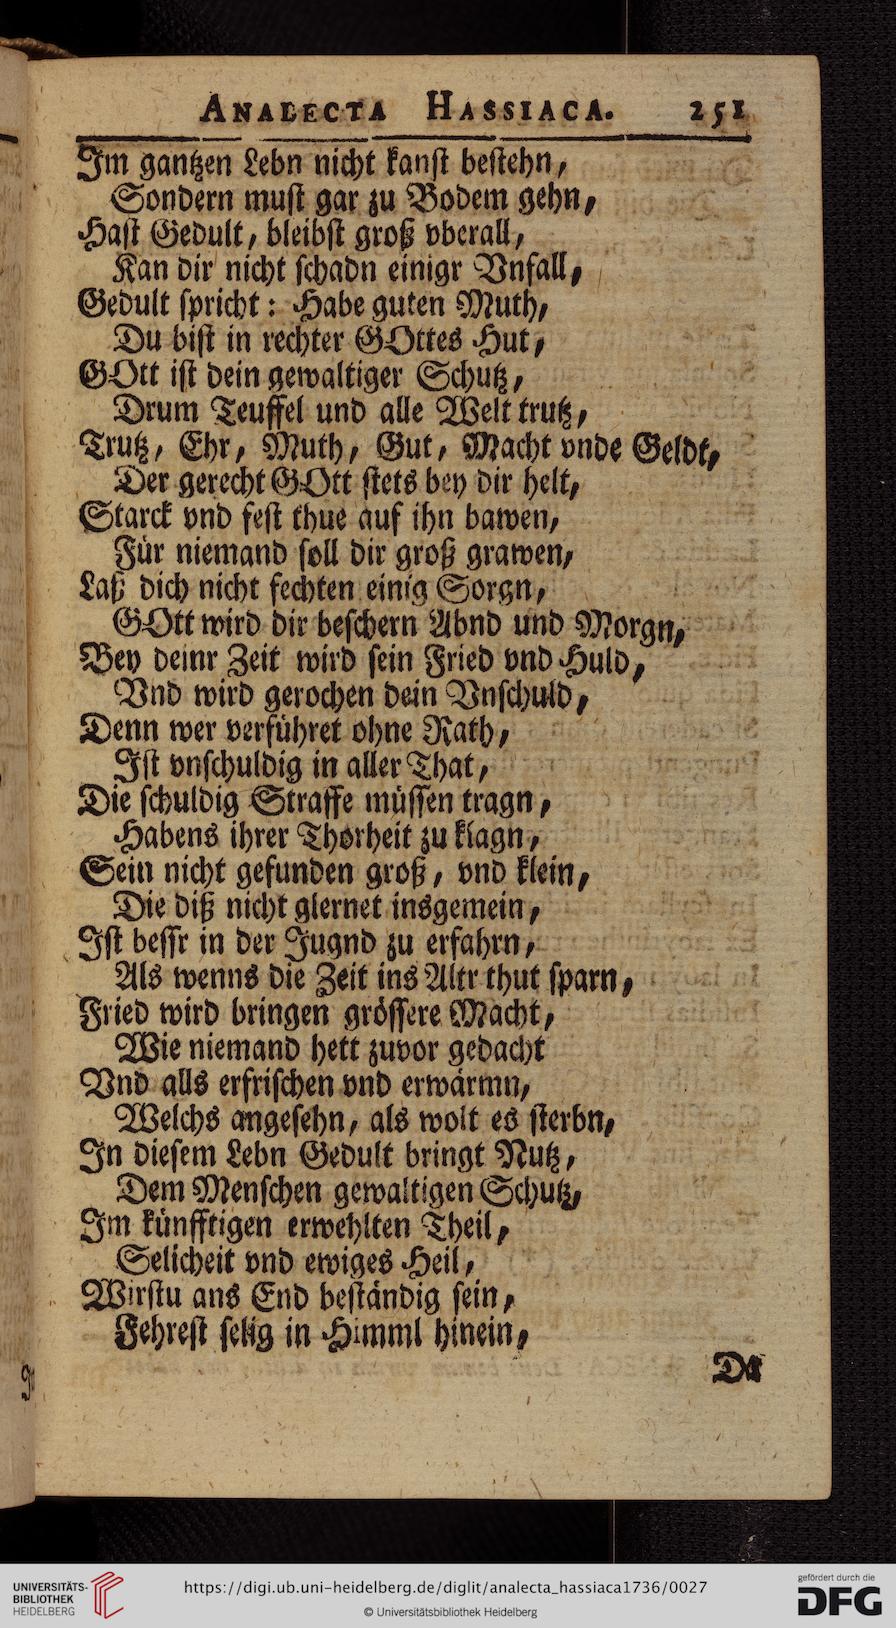 ANALECTA HASSIACA. 251
Im gantzen Lebn nicht kanst bestehn,
Sondern must gar zu Bodem gehn,
Hast Gedult, bleibst groß vberall,
Kan dir nicht schadn einigr Vnfall,
Gedult spricht: Habe guten Muth,
Du bist in rechter GOttes Hut,
GOtt ist dein gewaltiger Schutz,
Drum Teuffel und alle Welt trutz,
Trutz, Ehr, Muth, Gut, Macht vnde Geldt,
Der gerecht GOtt stets bey dir helt,
Starck vnd fest thue auf ihn bawen,
Für niemand soll dir groß grawen,
Laß dich nicht fechten einig Sorgn,
GOtt wird dir beschern Abnd und Morgn,
Bey deinr Zeit wird sein Fried vnd Huld,
Vnd wird gerochen dein Vnschuld,
Denn wer verführet ohne Rath,
Ist vnschuldig in aller That,
Die schuldig Straffe müssen tragn,
Habens ihrer Thorheit zu klagn,
Sein nicht gefunden groß, vnd klein,
Die diß nicht glernet insgemein,
Ist bessr in der Jugnd zu erfahrn,
Als wenns die Zeit ins Altr thut sparn,
Fried wird bringen grössere Macht,
Wie niemand hett zuvor gedacht
Vnd alls erfrischen vnd erwärmn,
Welchs angesehn, als wolt es sterbn,
In diesem Lebn Gedult bringt Nutz,
Dem Menschen gewaltigen Schutz,
Im künfftigen erwehlten Theil,
Selicheit vnd ewiges Heil,
Wirstu ans End beständig sein,
Fehrest selig in Himml hinein,
Da
UNIVERSITÄTS-
BIBLIOTHEK
HEIDELBERG
https://digi.ub.uni-heidelberg.de/diglit/analecta_hassiaca1736/0027
© Universitätsbibliothek Heidelberg
gefördert durch die
DFG